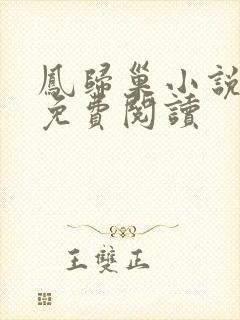 鳳歸巢小說
免費閱讀
王雙正